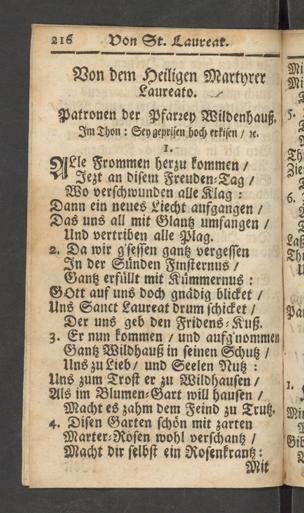 216 Von St. Laureat.
Von dem Heiligen Martyrer
Laureato.
Patronen der Pfarrey Wildenhauß.
Im Thon: Sey geprisen hoch erkisen / ꝛc.
1.
ALle Frommen herzu kommen /
Jezt an disem Freuden-Tag /
Wo verschwunden alle Klag:
Dann ein neues Liecht aufgangen /
Das uns all mit Glantz umfangen /
Und vertriben alle Plag.
2. Da wir g'sessen gantz vergessen
In der Sünden Finsternus /
Gantz erfüllt mit Kümmernus:
GOtt auf uns doch gnädig blicket /
Uns Sanct Laureat drum schicket /
Der uns geb den Fridens-Kuß.
3. Er nun kommen / und aufg'nommen
Gantz Wildhauß in seinen Schutz /
Uns zu Lieb / und Seelen Nutz:
Uns zum Trost er zu Wildhausen /
Als im Blumen-Gart will hausen /
Macht es zahm dem Feind zu Trutz.
4. Disen Garten schön mit zarten
Marter-Rosen wohl verschantz /
Macht dir selbst ein Rosenkrantz:
Mit